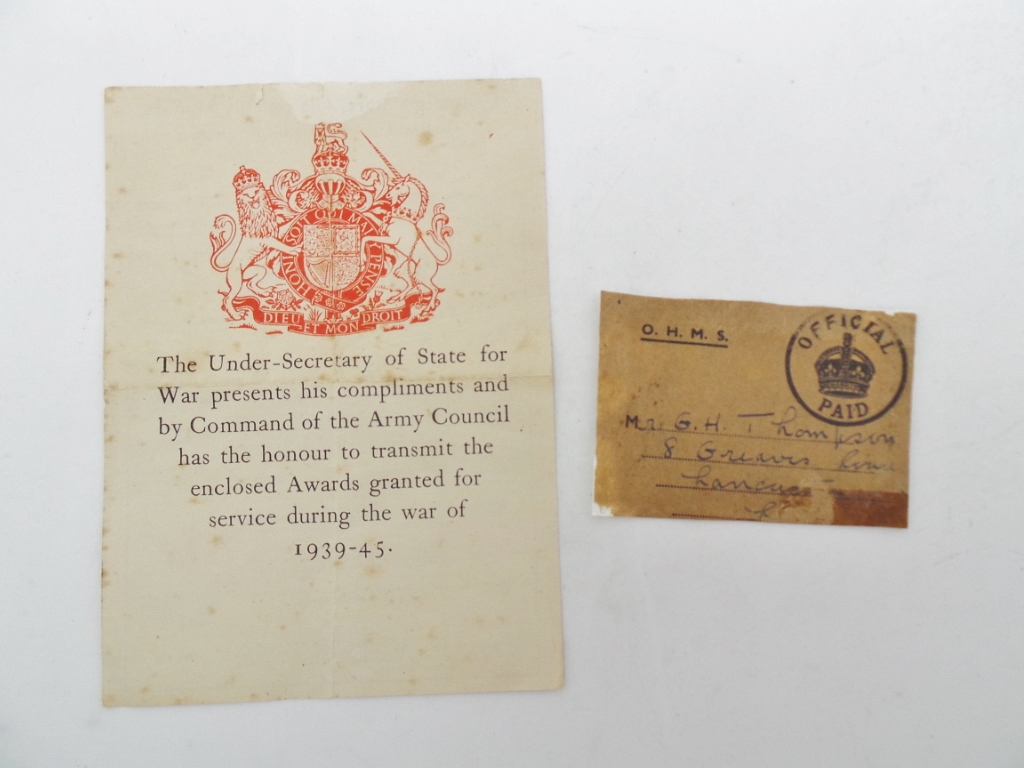 HONI SOIT QUI MAL Y PENSE
DIEU ET MON DROIT
The Under-Secretary of State for
War presents his compliments and
by Command of the Army Council
has the honour to transmit the
enclosed Awards granted for
service during the war of
1939-45.
O. H. M. S.
OFFICIAL
PAID
Mr. G. H. Thompson
8 Greaves